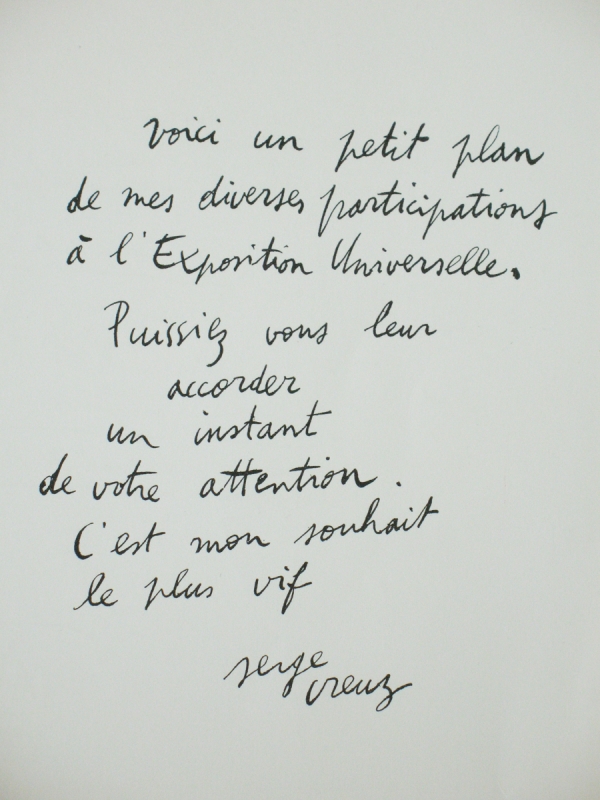 Voici un petit plan
de mes diverses participations
à l'Exposition Universelle.
Puissiez vous leur
accorder
un instant
de votre attention.
C'est mon souhait
le plus vif
serge
creuz